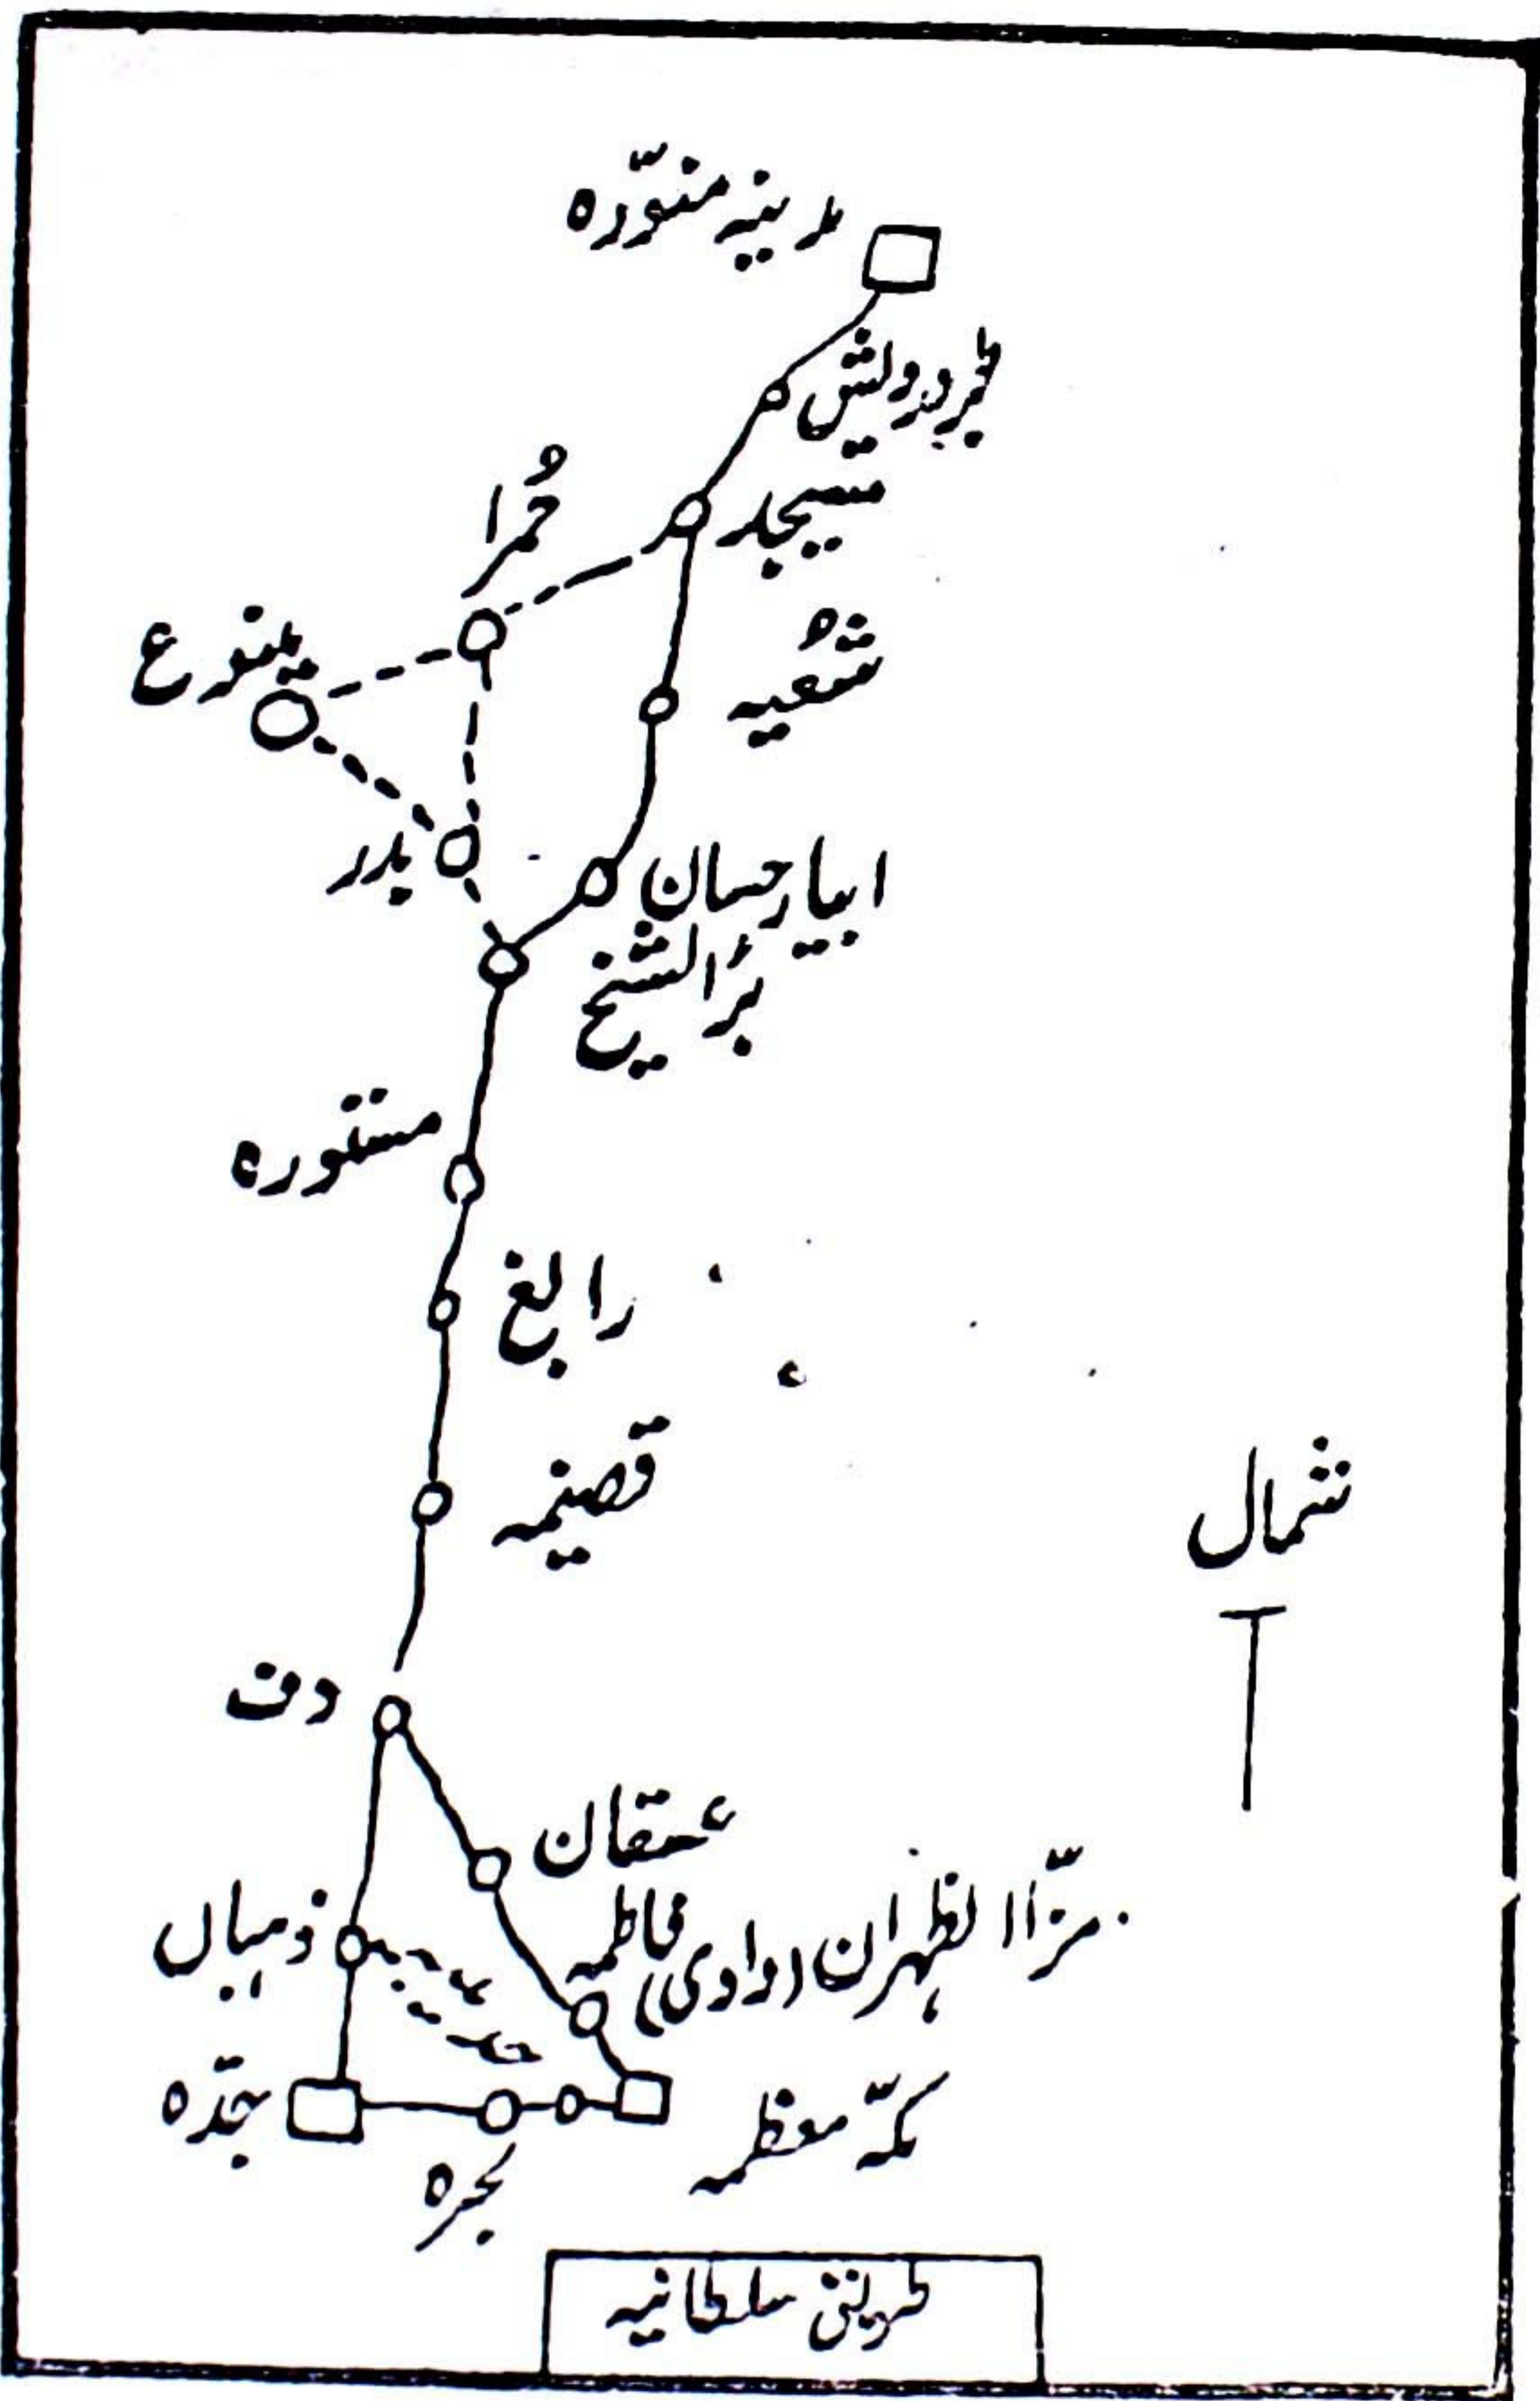 مدینہ منوّرہ
بیر درویش
مسیجد
حُمرا
شُفیہ
ینبوع
بدر
ابیار حسان
بئر الشیخ
مستورہ
رابغ
قضیمہ
شمال
دف
عسقان
مرّ الظہران (وادی فاطمہ)
ذہبان
جدّہ
مکّہ معظمہ
بحرہ
طریق سلطانیہ